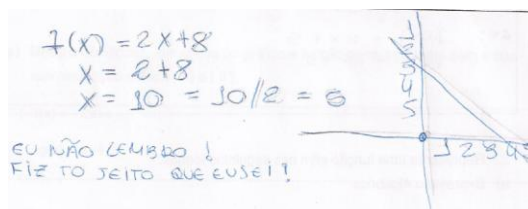 f(x) = 2x+8
x = 2+8
x = 10 = 10/2 = 5
EU NÃO LEMBRO!
FIZ TO JEITO QUE EU SEI!
1
2
3
4
5
1 2 3 4 5